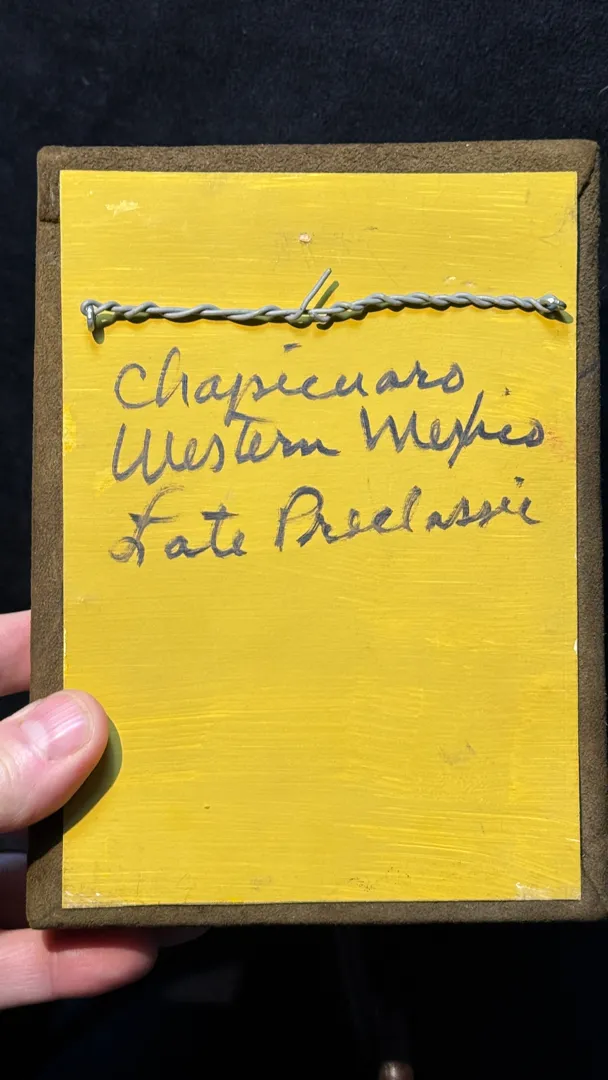 Chapicuaro
Western Mexico
Late Preclassic